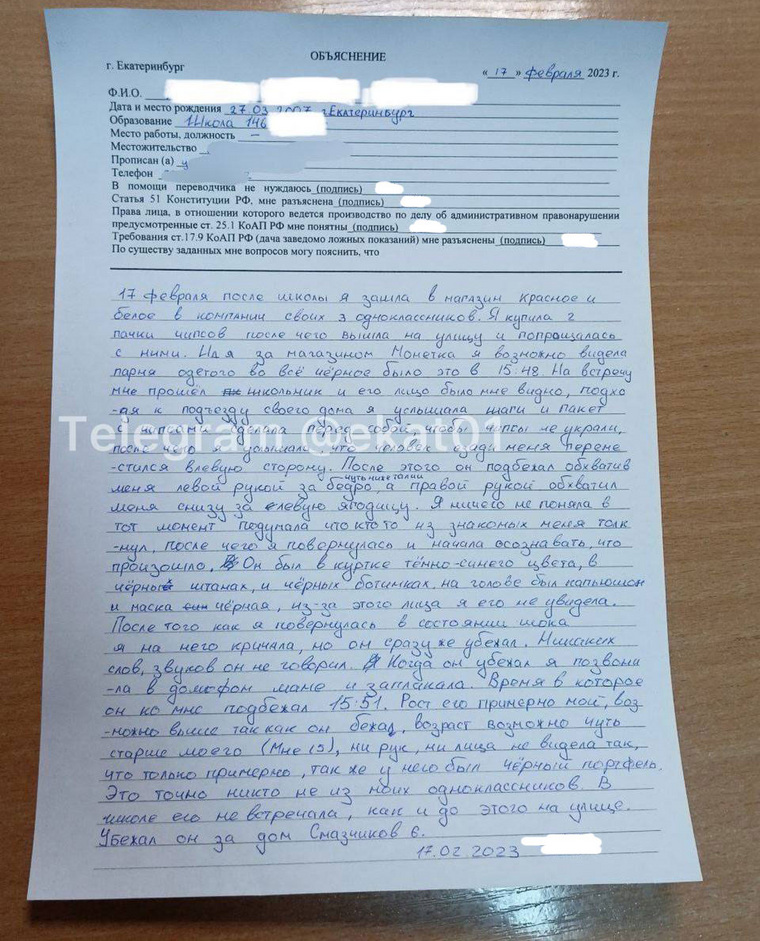 ОБЪЯСНЕНИЕ
г. Екатеринбург «17» февраля 2023 г.
Ф.И.О.
Дата и место рождения 27.03.2007 г.Екатеринбург
Образование Школа 146
Место работы, должность —
Местожительство
Прописан (а)
Телефон
В помощи переводчика не нуждаюсь (подпись)
Статья 51 Конституции РФ, мне разъяснена (подпись)
Права лица, в отношении которого ведется производство по делу об административном правонарушении
предусмотренные ст. 25.1 КоАП РФ мне понятны (подпись)
Требования ст.17.9 КоАП РФ (дача заведомо ложных показаний) мне разъяснены (подпись)
По существу заданных мне вопросов могу пояснить, что
17 февраля после школы я зашла в магазин Красное и
белое в компании своих 3 одноклассников. Я купила 2
пачки чипсов после чего вышла на улицу и попрощалась
с ними. Идя за магазином Монетка я возможно видела
парня одетого во всё чёрное было это в 15 48. На встречу
мне прошёл школьник и его лицо было мне видно, подхо
-ая к подъезду своего дома я услышала шаги и пакет
с чипсами сделала перед собой, чтобы чипсы не украли,
после чего я услышала, что человек сзади меня переме
-стился влевую сторону. После этого он подбежал обхватив
чуть ниже талии
меня левой рукой за бедро, а правой рукой обхватил
меня снизу за левую ягодицу. Я ничего не поняла в
тот момент подумала что кто то из знакомых меня толк
-нул, после чего я повернулась и начала осознавать, что
произошло. Он был в куртке тёмно-синего цвета, в
чёрных штанах, и чёрных ботинках, на голове был капюшон
и маска чёрная, из-за этого лица я его не увидела.
После того как я повернулась в состоянии шока
я на него кричала, но он сразу же убежал. Никаких
слов, звуков он не говорил. Когда он убежал я позвони
-ла в домофон маме и заплакала. Время в которое
он ко мне подбежал 15:51. Рост его примерно мой, воз
-можно выше так как он бежал, возраст возможно чуть
старше моего (Мне 15), ни рук, ни лица не видела так,
что только примерно, так же у него был чёрный портфель.
Это точно никто не из моих одноклассников. В
школе его не встречала, как и до этого на улице.
Убежал он за дом Смазчиков 6.
17.02.2023
Telegram @ekat01